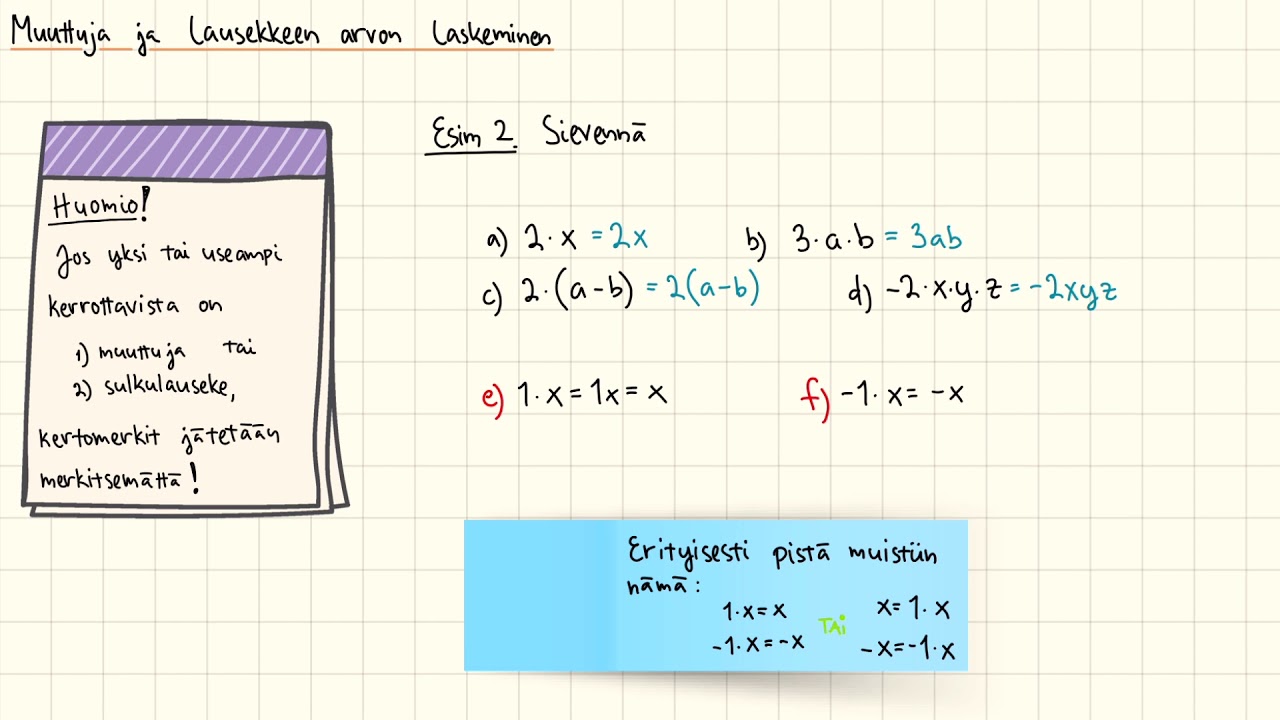 Muuttuja ja lausekkeen arvon laskeminen
Huomio!
Jos yksi tai useampi
kerrottavista on
1) muuttuja tai
2) sulkulauseke,
kertomerkit jätetään
merkitsemättä!
Esim 2. Sievennä
a) 2·x = 2x b) 3·a·b = 3ab
c) 2·(a-b) = 2(a-b) d) -2·x·y·z = -2xyz
e) 1·x = 1x = x f) -1·x = -x
Erityisesti pistä muistiin
nämä:
1·x = x TAI x = 1·x
-1·x = -x -x = -1·x